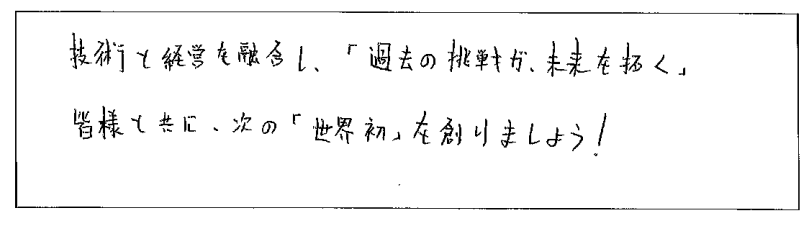 技術と経営を融合し、「過去の挑戦が、未来を拓く」
皆様と共に、次の「世界初」を創りましょう!